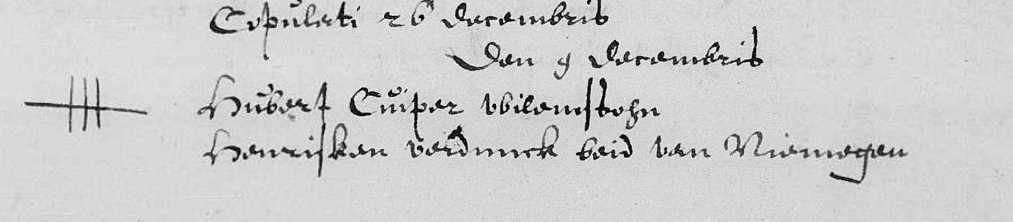 Copulati 26 decembris
Den 9 decembris
Hubert Cuiper wilemssohn
Henrisken verdunck beid van Niemegen